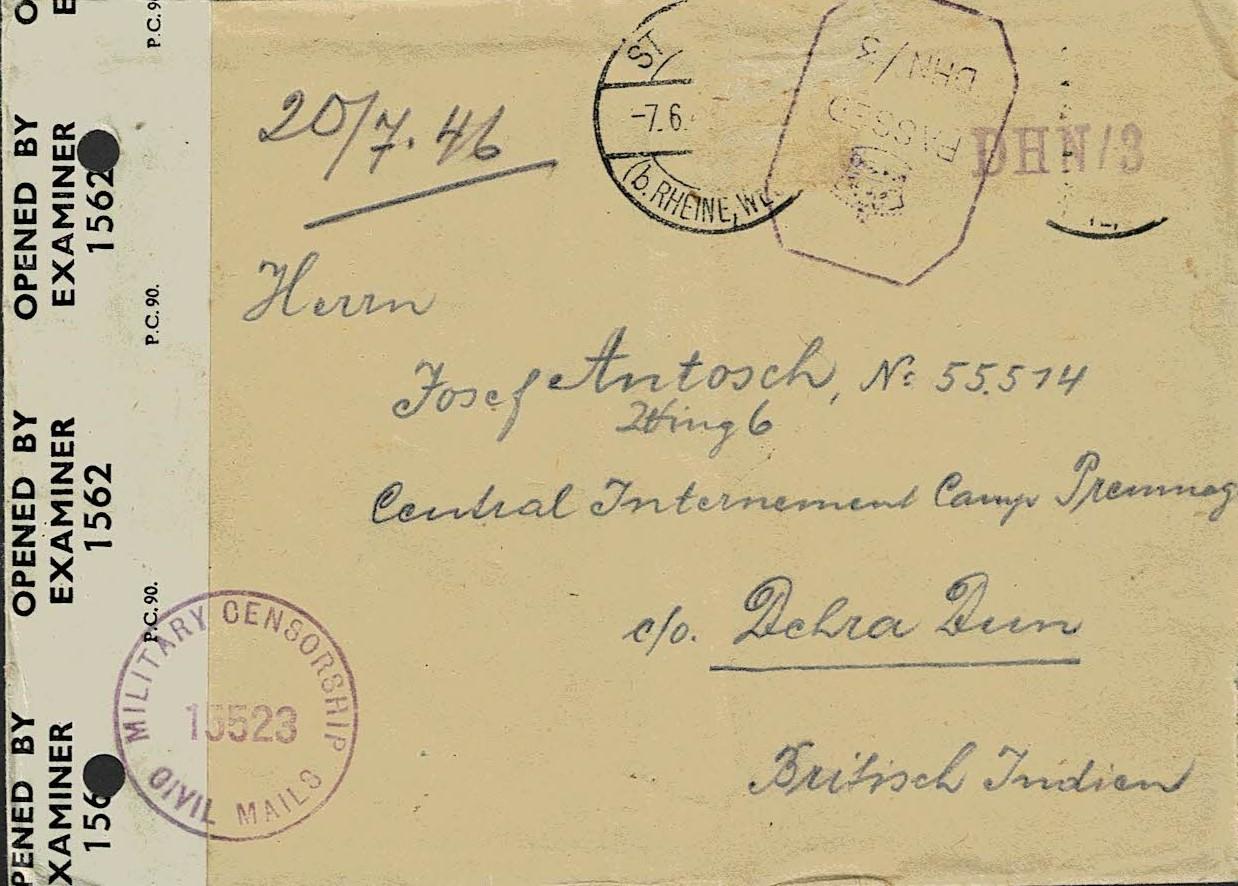 OPENED BY
EXAMINER
1562
P.C. 90.
OPENED BY
EXAMINER
1562
P.C. 90.
PENED BY
XAMINER
156
P.C. 9
20/7.46
ST
-7.6.
(b. RHEINE, W
PASSED
DHN/3
DHN/3
Herrn
Josef Antosch, No: 55.514
Wing 6
Central Internement Camp Premnag
c/o. Dehra Dun
Britisch Indien
MILITARY CENSORSHIP
15523
CIVIL MAILS